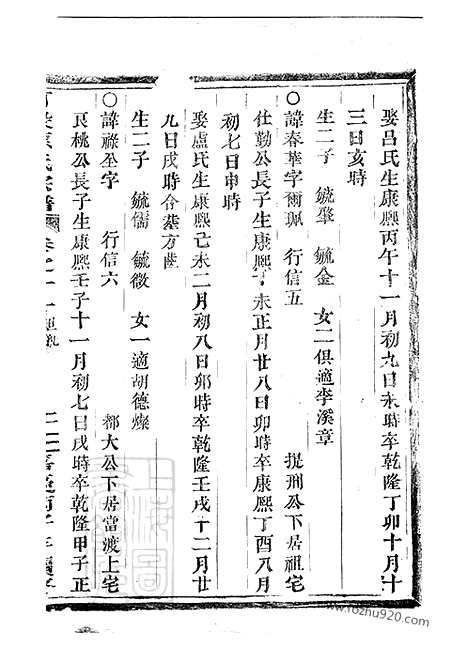 娶呂氏生康熙丙午十一月初九日未時卒乾隆丁卯十月十
三日亥時
生二子 毓肇 毓金 女二俱適李溪章
○諱春華字爾珮 行信五 提刑公下居祖宅
仕勤公長子生康熙丁未正月廿八日卯時卒康熙丁酉八月
初七日申時
娶盧氏生康熙己未二月初八日卯時卒乾隆壬戌十二月廿
九日戌時合墓方
生二子 毓儒 毓徵 女一適胡德燦
○諱祿 字 行信六 都大公下居當渡上宅
良桃公長子生康熙壬子十一月初七日戌時卒乾隆甲子正
氏宗譜 卷之十一
www.rozhu920.com